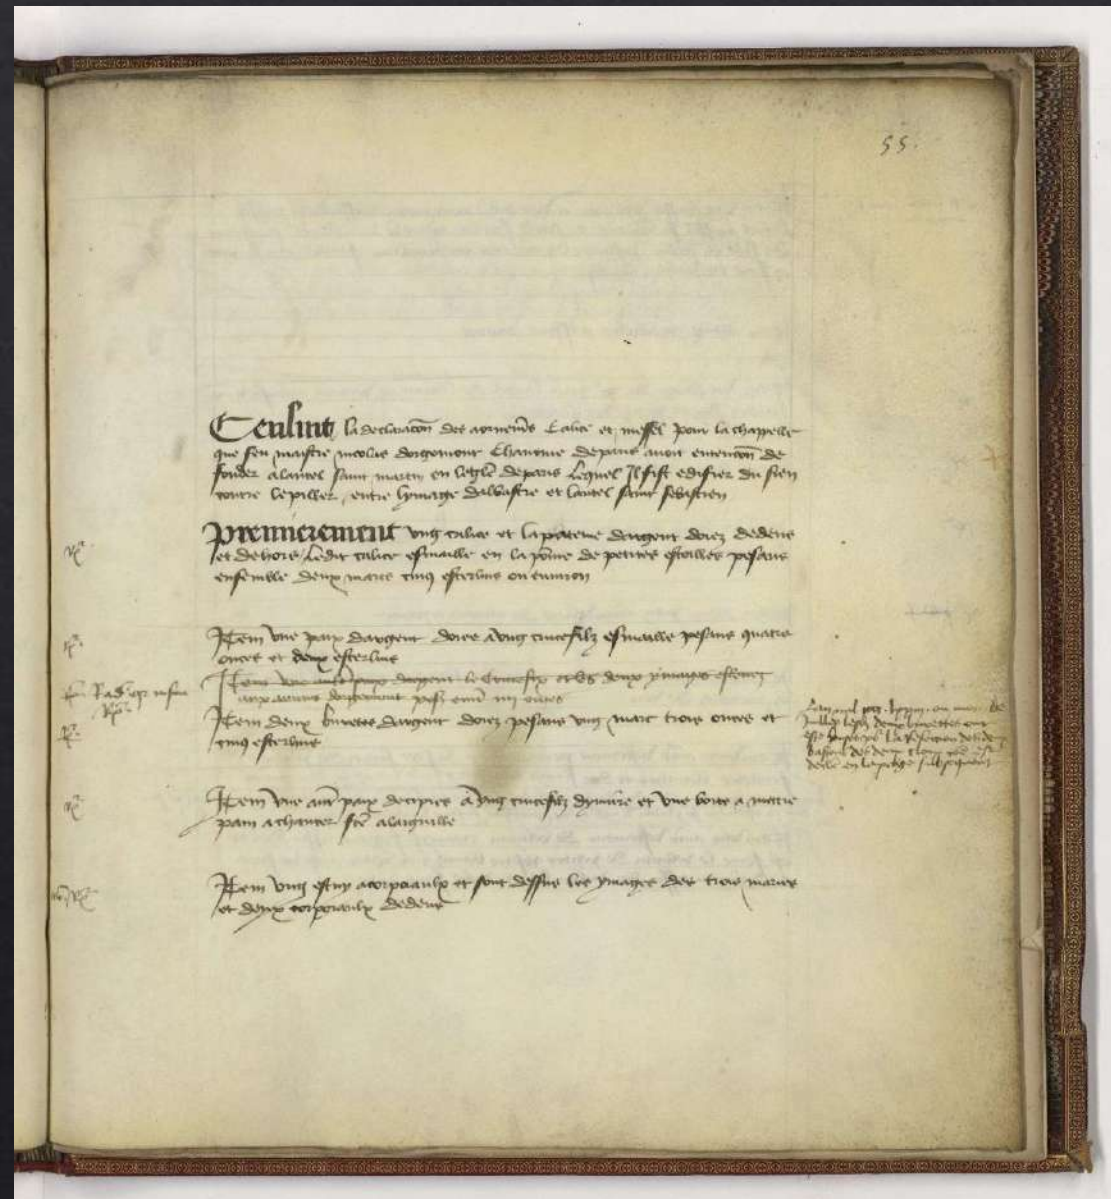 55.
Censuit la declaracōn des aornemēs calice et messel pour la chappelle
que feu maistre nicolas dorgemont chanoine de paris auoit entencōn de
fonder a lautel saint martin en leglē de paris lequel Il fist edifier du sien
contre le pillier entre lymage dalbastre et lautel saint sebastien
Premierement vng calice et la patene dargent dorez dedens
et dehors ledit calice esmaillé en la pōme de petites estoilles pesans
ensemble deux marcs cinq esterlins ou enuiron
Item vne paix dargent doree a vng crucefilz esmaillé pesans quatre
onces et deux esterlins
Item vne autre paix dargent le crucefix et les deux ymages
aux armes dorgemont iiii onces
Item deux burettes dargent dorez pesans vng marc trois onces et
cinq esterlins
Item vne autr̄ paix de cipres a vng crucefilz dyuire et vne boite a mettre
pain a chanter fcē a laiguille
Item vng estuy a corporaulx et sont dessus les ymages des trois maries
et deux corporaulx dedens
Lan mil
Juillet lesd deux burettes ont
este
bassins des deux
en la page subsequent